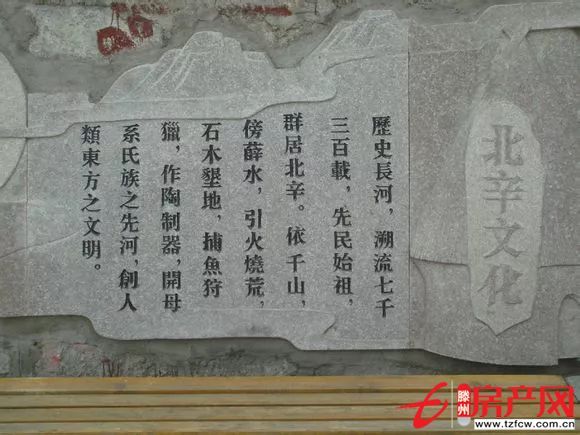 北辛文化
歷史長河，溯流七千
三百載，先民始祖，
群居北辛。依千山，
傍薛水，引火燒荒，
石木墾地，捕魚狩
獵，作陶制器，開母
系氏族之先河，創人
類東方之文明。
滕州
房产网
www.tzfcw.com.cn